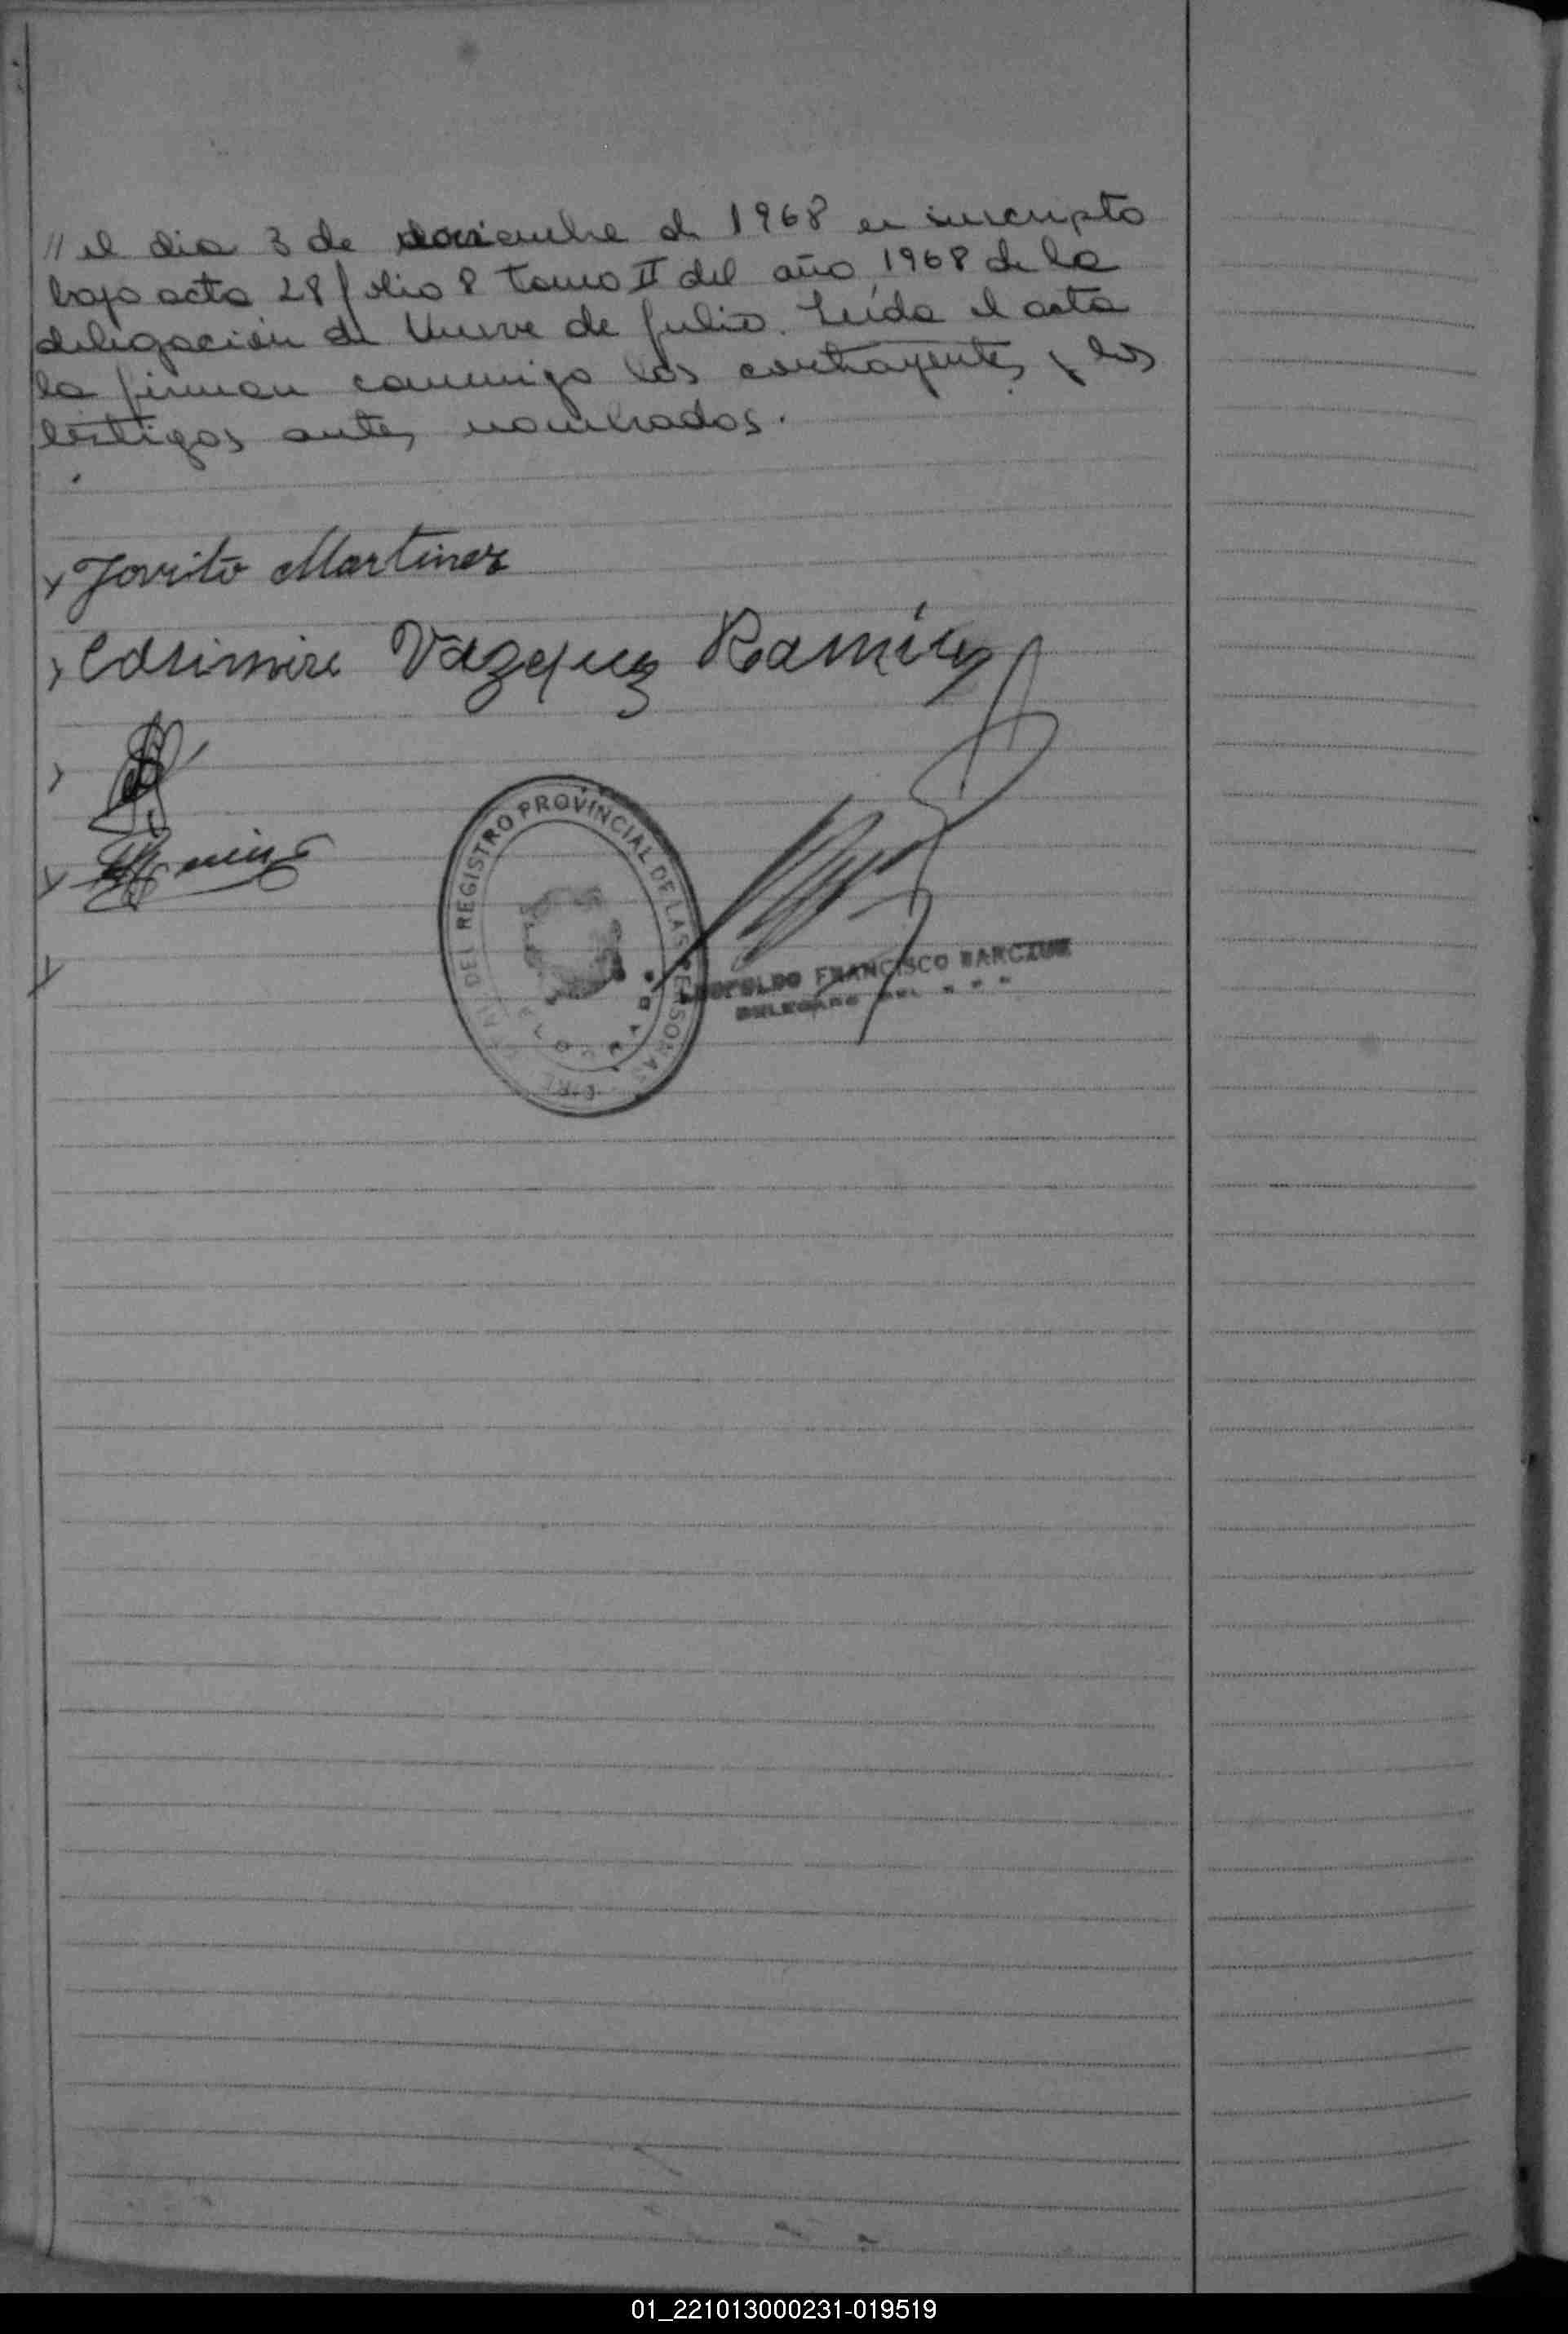 // el dia 3 de diciembre de 1968 es inscripto
bajo acta 28 folio 8 tomo II del año 1968 de la
delegación de Nueve de Julio. Leída el acta
la firman conmigo los contrayentes y los
testigos antes nombrados.
Jovito Martinez
Casimira Vazquez Ramirez
DEL REGISTRO PROVINCIAL DE LAS PERSONAS
LEOPOLDO FRANCISCO BARCZUK
DELEGADO DEL
01_221013000231-019519